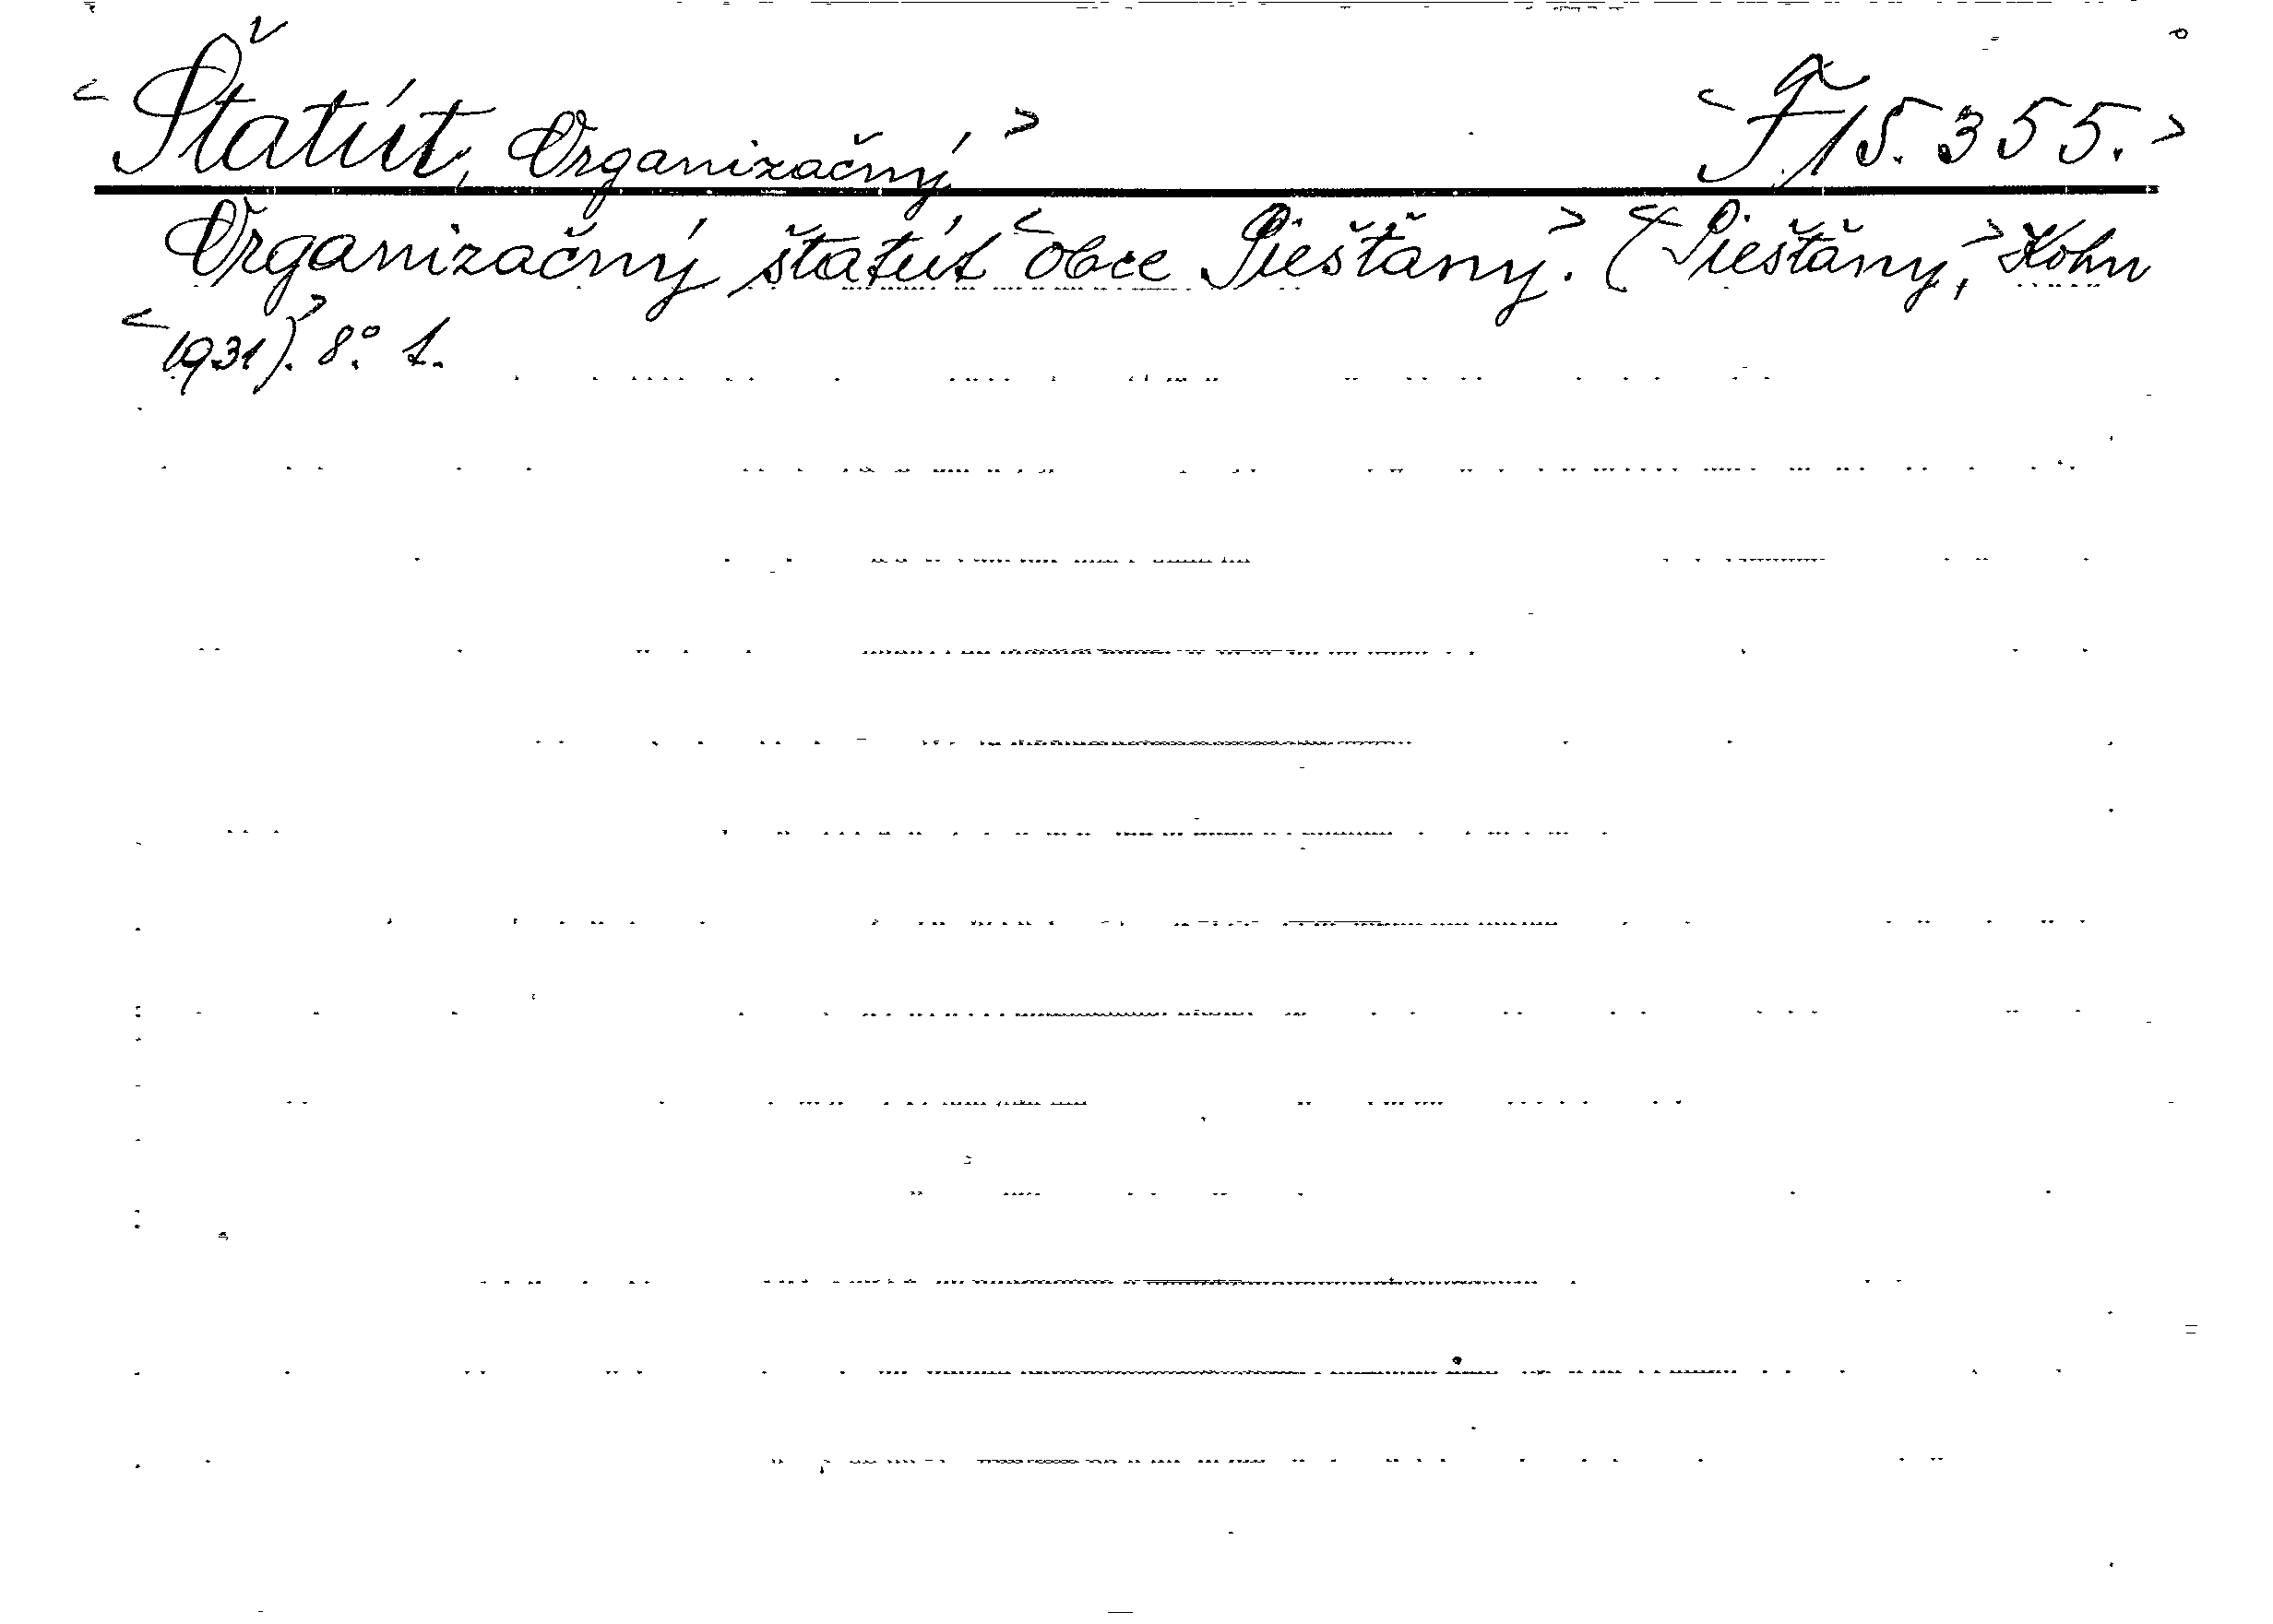 <Štatút, Organizačný> <F 15.355.>
Organizačný štatút <obce Piešťany>. (<Piešťany,> Kohn
<1931).> 8° 1.